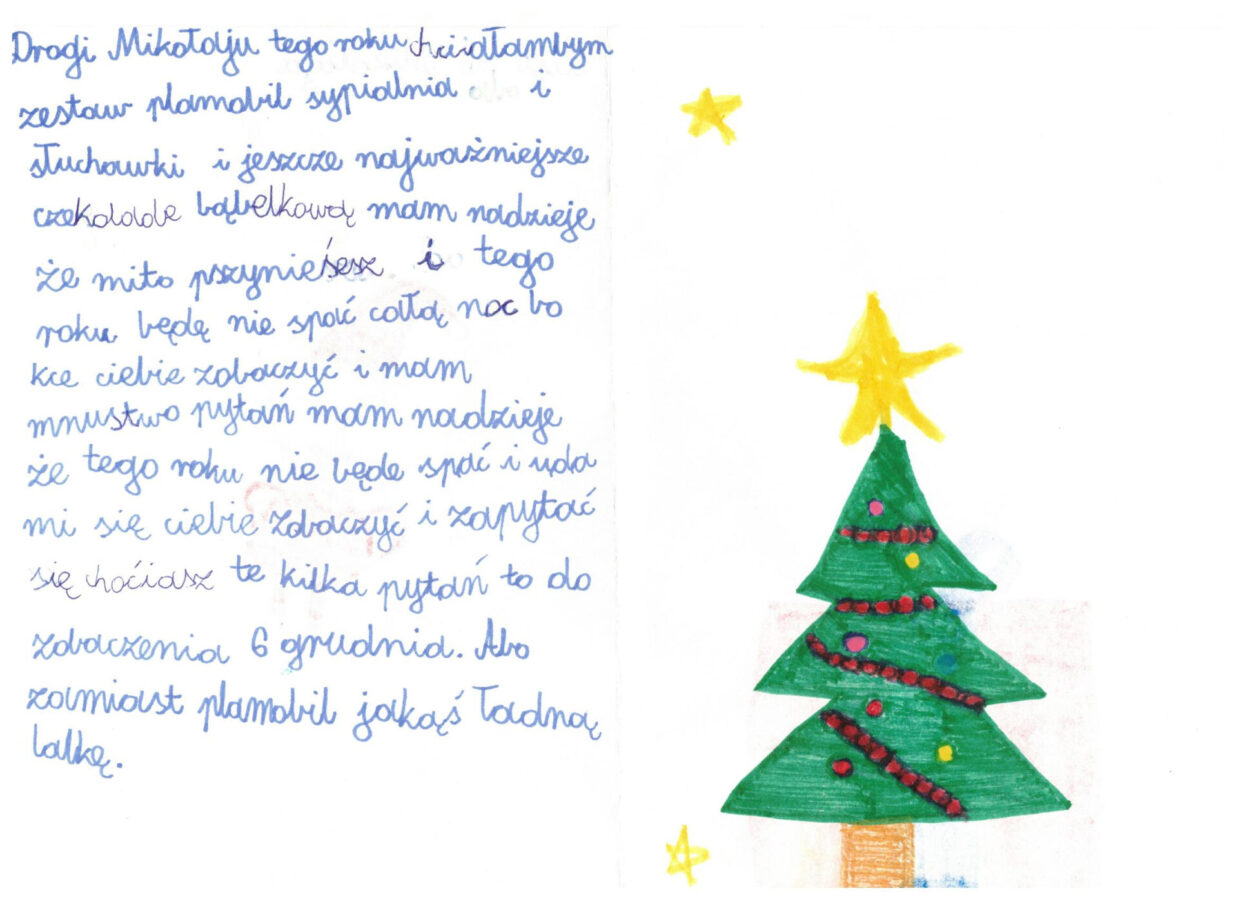 Drogi Mikołaju tego roku chciiałambym
zestaw plamobil sypialnia i
słuchawki i jeszcze najważniejsze
czekolade bąbelkową mam nadzieję
że mito pszynieśesz i tego
roku będę nie spać całą noc bo
kce ciebie zobaczyć i mam
mnustwo pytań mam nadzieje
że tego roku nie będe spać i uda
mi się ciebie zobaczyć i zapytać
się choćiasz te kilka pytań to do
zobaczenia 6 grudnia. Abo
zamiast plamobil jakąś ładną
lalkę.